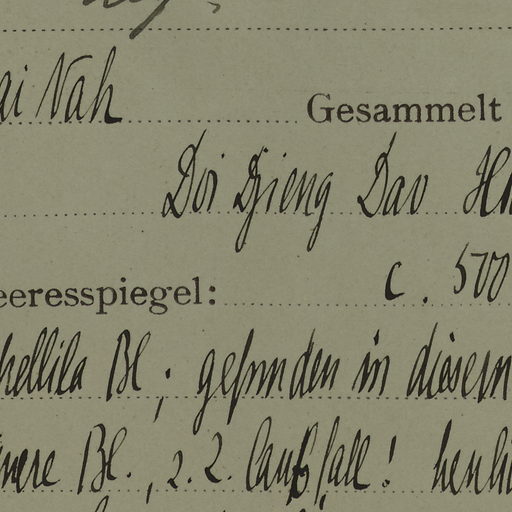 ai Nah Gesammelt
Doi Djieng Dao
eeresspiegel: c. 500
hellila Bl; gefunden in diesem
nere Bl., z. Z. Laubfall!